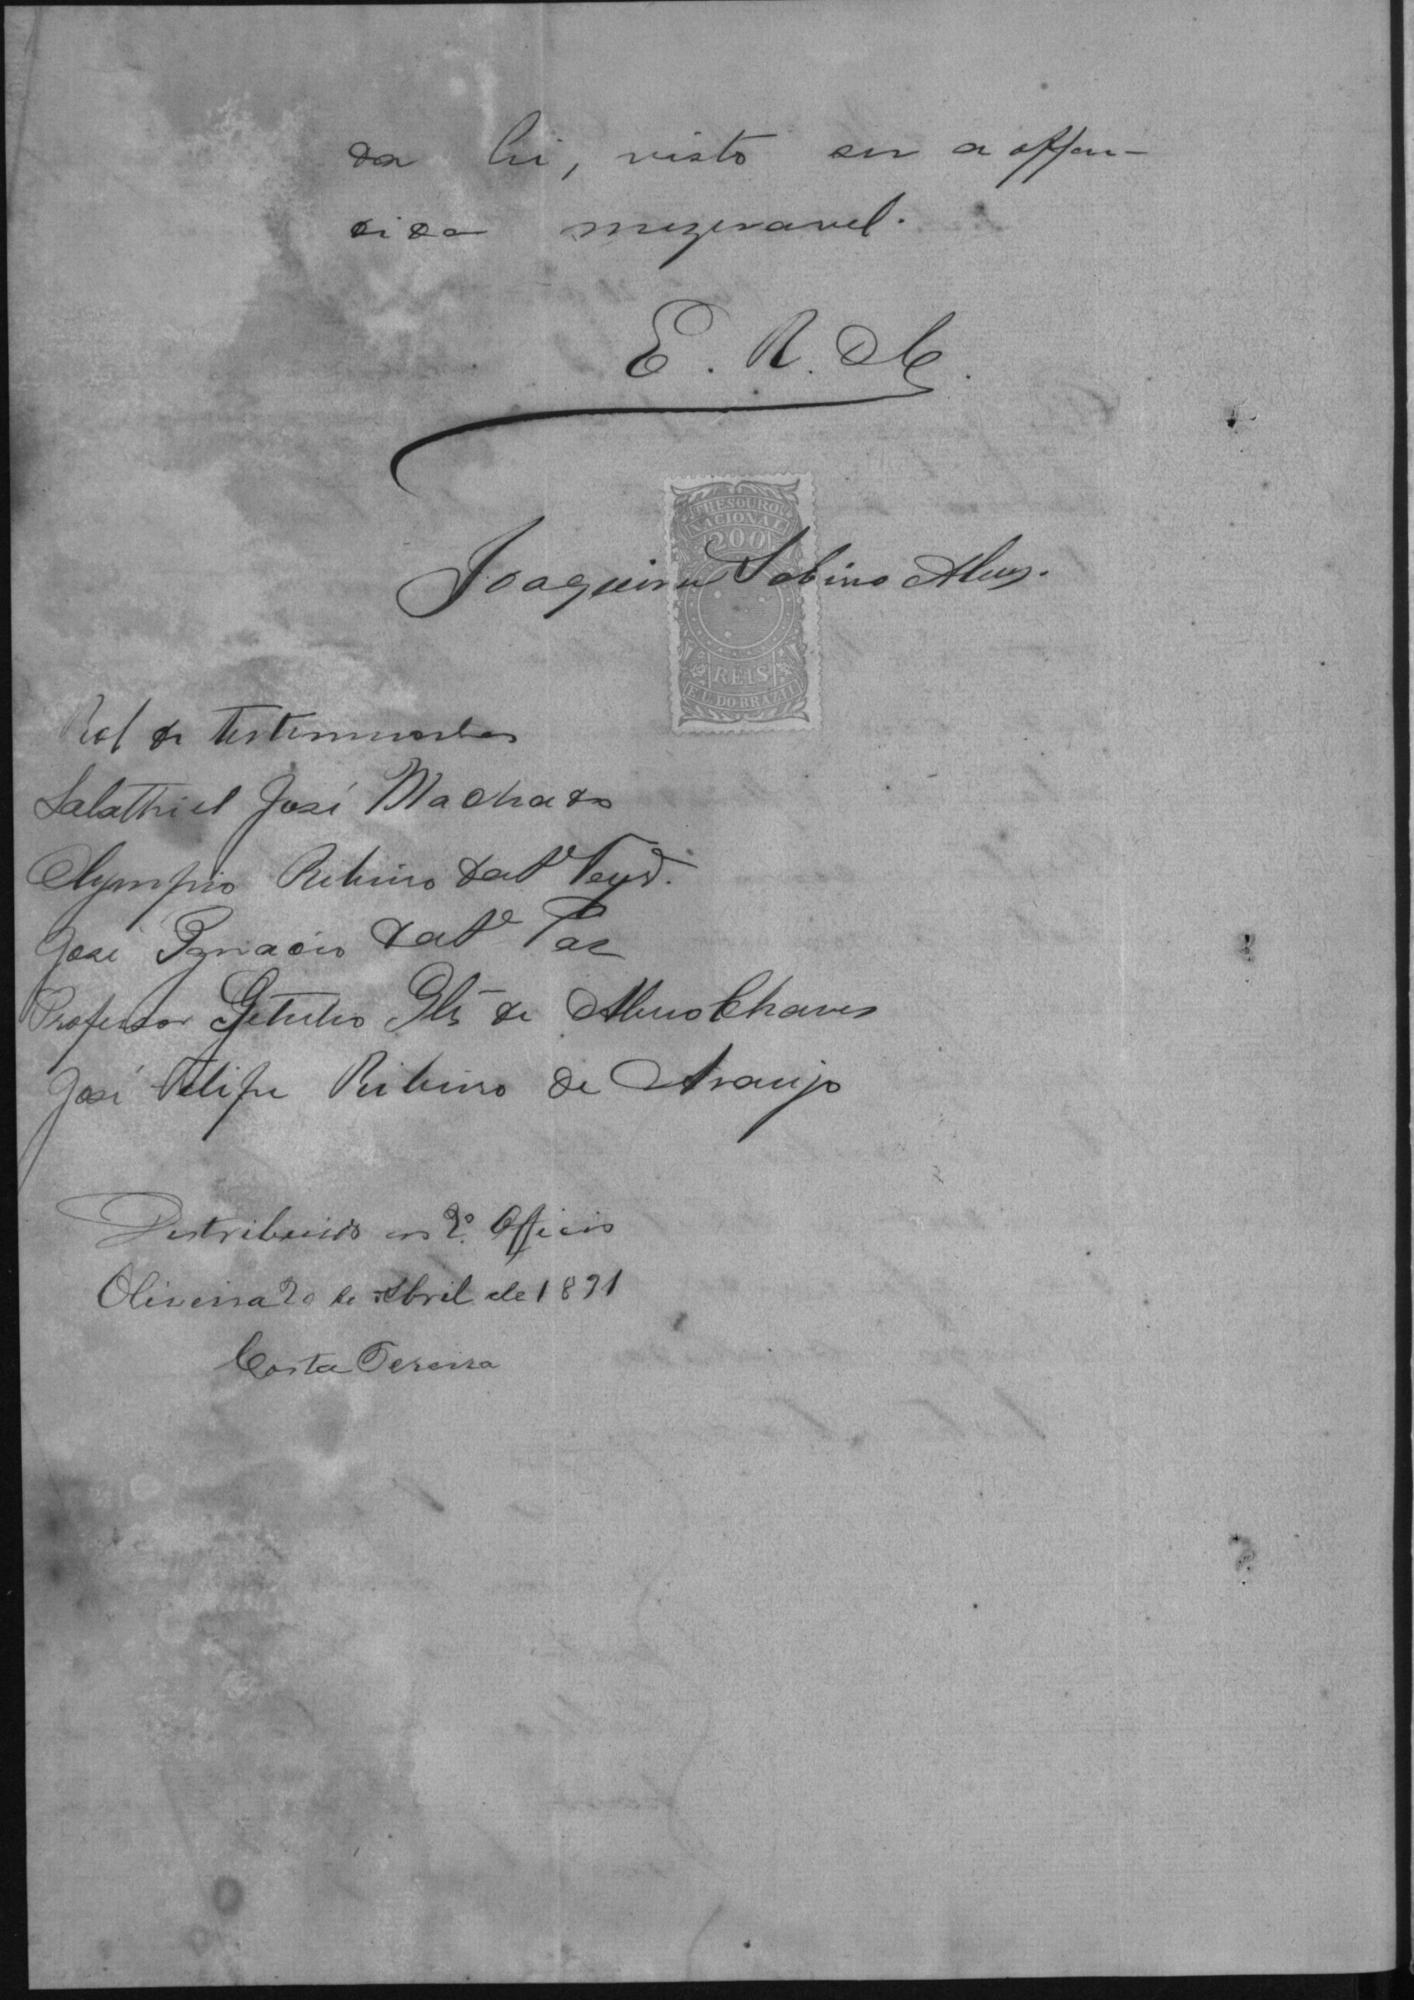 da lei, visto ser a offen-
dida mizeravel.
E. R. Mce.
THESOURO
NACIONAL
200
Joaquim Sabino Alves.
REIS
E. U. DO BRAZIL
Rol de testemunhas
Salathiel José Machado
Olympio Ribeiro da
José Ignacio da Paz
Professor Getulio de Chaves
José Felipe Ribeiro de Araujo
Distribuido ao 2º. Officio
Oliveira 20 de Abril de 1891
Costa Pereira